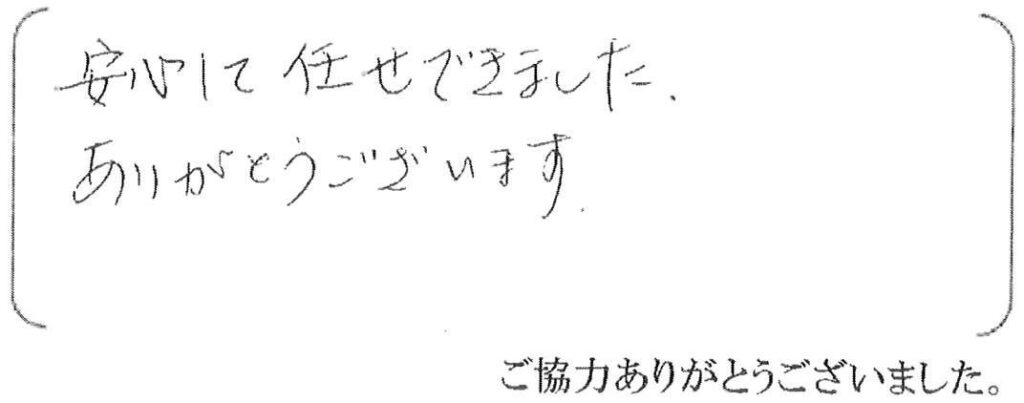 安心して任せできました.
ありがとうございます.
ご協力ありがとうございました。